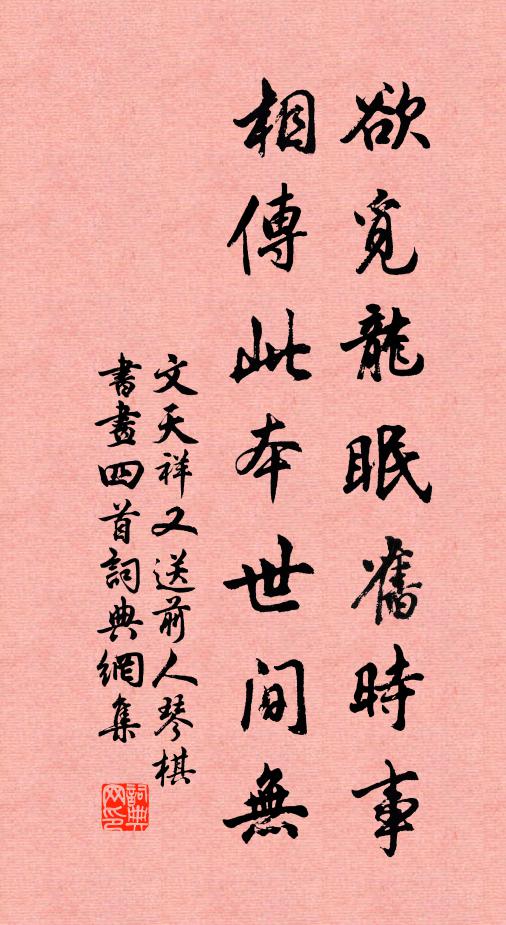 欲覓龍眠舊時事
相傳此本世間無
文天祥又送前人琴棋
書畫四首詞典網集
詞典
网印